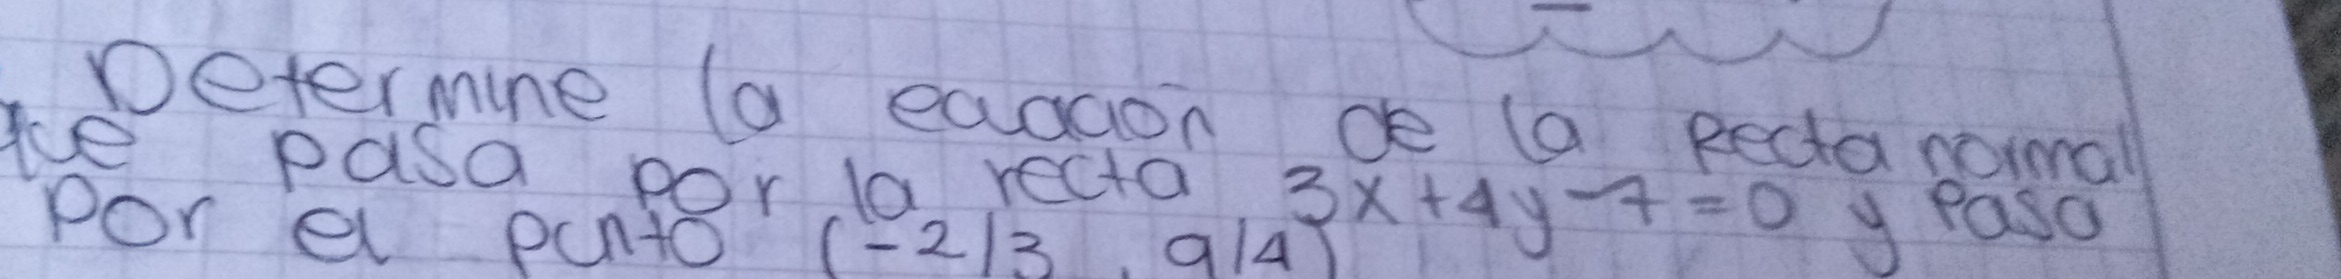 Determine la ecuación de la Recta normal
que pasa por la recta 3x+4y-7=0 y Pasa
Por el punto (-2/3, 9/4)